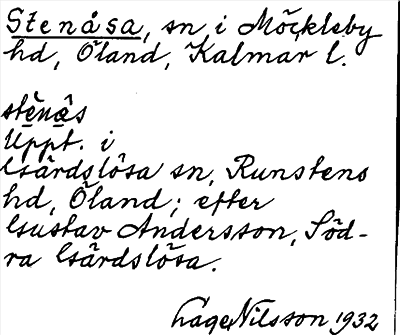 Stenåsa, sn i Möckleby
hd, Öland, Kalmar l.
stènås
Uppt. i
Gärdslösa sn, Runstens
hd, Öland; efter
Gustav Andersson, Söd-
ra Gärdslösa.
Lage Nilsson 1932